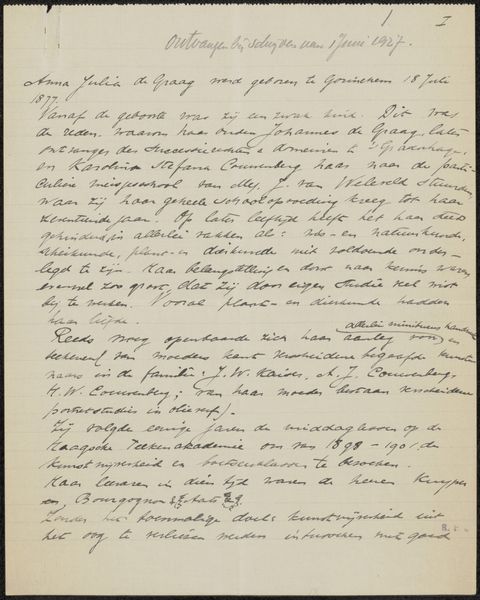 I
ontvangen bij schrijven van 1 Juni 1927.
Anna Julia de Graag werd geboren te Gorinchem 18 Juli
1877.
Vanaf de geboorte was zij een zwak kind. Dit was
de reden, waarom haar ouders Johannes de Graag, later
ontvanger des Successierechten & domeinen te 's Gravenhage,
en Karolina Stefana Couwenberg haar naar de parti-
culiere meisjesschool van Mej. J. van
waar zij haar geheele schoolopvoeding kreeg tot haar
zeventiende jaar. Op later leeftijd heeft het haar
gehinderd, in allerlei vakken als: wis- en natuurkunde,
scheikunde, plant- en dierkunde niet voldoende onder-
legd te zijn. Haar belangstelling en dorst naar kennis waren
evenwel zoo groot, dat zij door eigen studie veel wist
bij te werken. Vooral plant- en dierkunde hadden
haar liefde.
Reeds vroeg openbaarde zich haar aanleg voor allerlei en
teekenen (van moeders kant verscheidene begaafde kunste-
naars in de familie: J. W. Kaiser, A. J. Couwenberg,
H. W. Couwenberg; van haar moeder bestaan verscheidene
portretstudies in olieverf).
Zij volgde eenige jaren de middaglessen op de
Haagsche Teekenakademie om van 1898 - 1901 de
kunstnijverheid en te bezoeken.
Haar leeraren in dien tijd waren de heeren
en Bourgogne
Zonder het toenmalige doel: kunstnijverheid uit
het oog te verliezen werden intusschen met goed